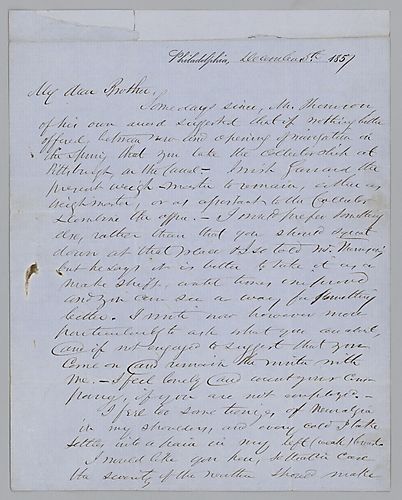 Philadelphia, December 5th 1857
My dear Brother,
Some days since, Mr. Thomson
of his own accord suggested that if nothing better
offered, between now and opening of navigation in
the Spring that you take the Collectorship at
Pittsburgh on the Canal -
present weigh master to remain, either as
weigh master, or as assistant to the Collector
the office. - I would prefer something
else, rather than that you should
down at that place & so told Mr.
but he says it is better to take it as a
make shift, until times improved
and you can see a way for something
better. I write now however more
particularly to ask what you are about,
and if not engaged to suggest that you
come on and remain the winter with
me. - I feel lonely and want your com-
pany, if you are not employed. -
I feel too some twinges of Neuralgia
in my shoulders, and every cold I take
settles into a pain in my left
I would like you here, so that in case
the severity of the weather should make